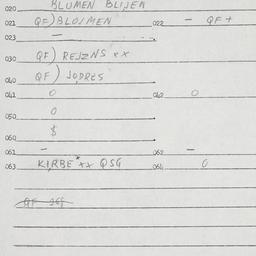 020 BLUMEN BLIJEN
021 QF) BLOIMEN 022 - QF+
023 -
030 QF) REJZNS xx
040 QF) JODRES
041 0 042 0
050 0
050 $
060
061 - 062 -
063 KIRBE*xx QSG 064 0
QF